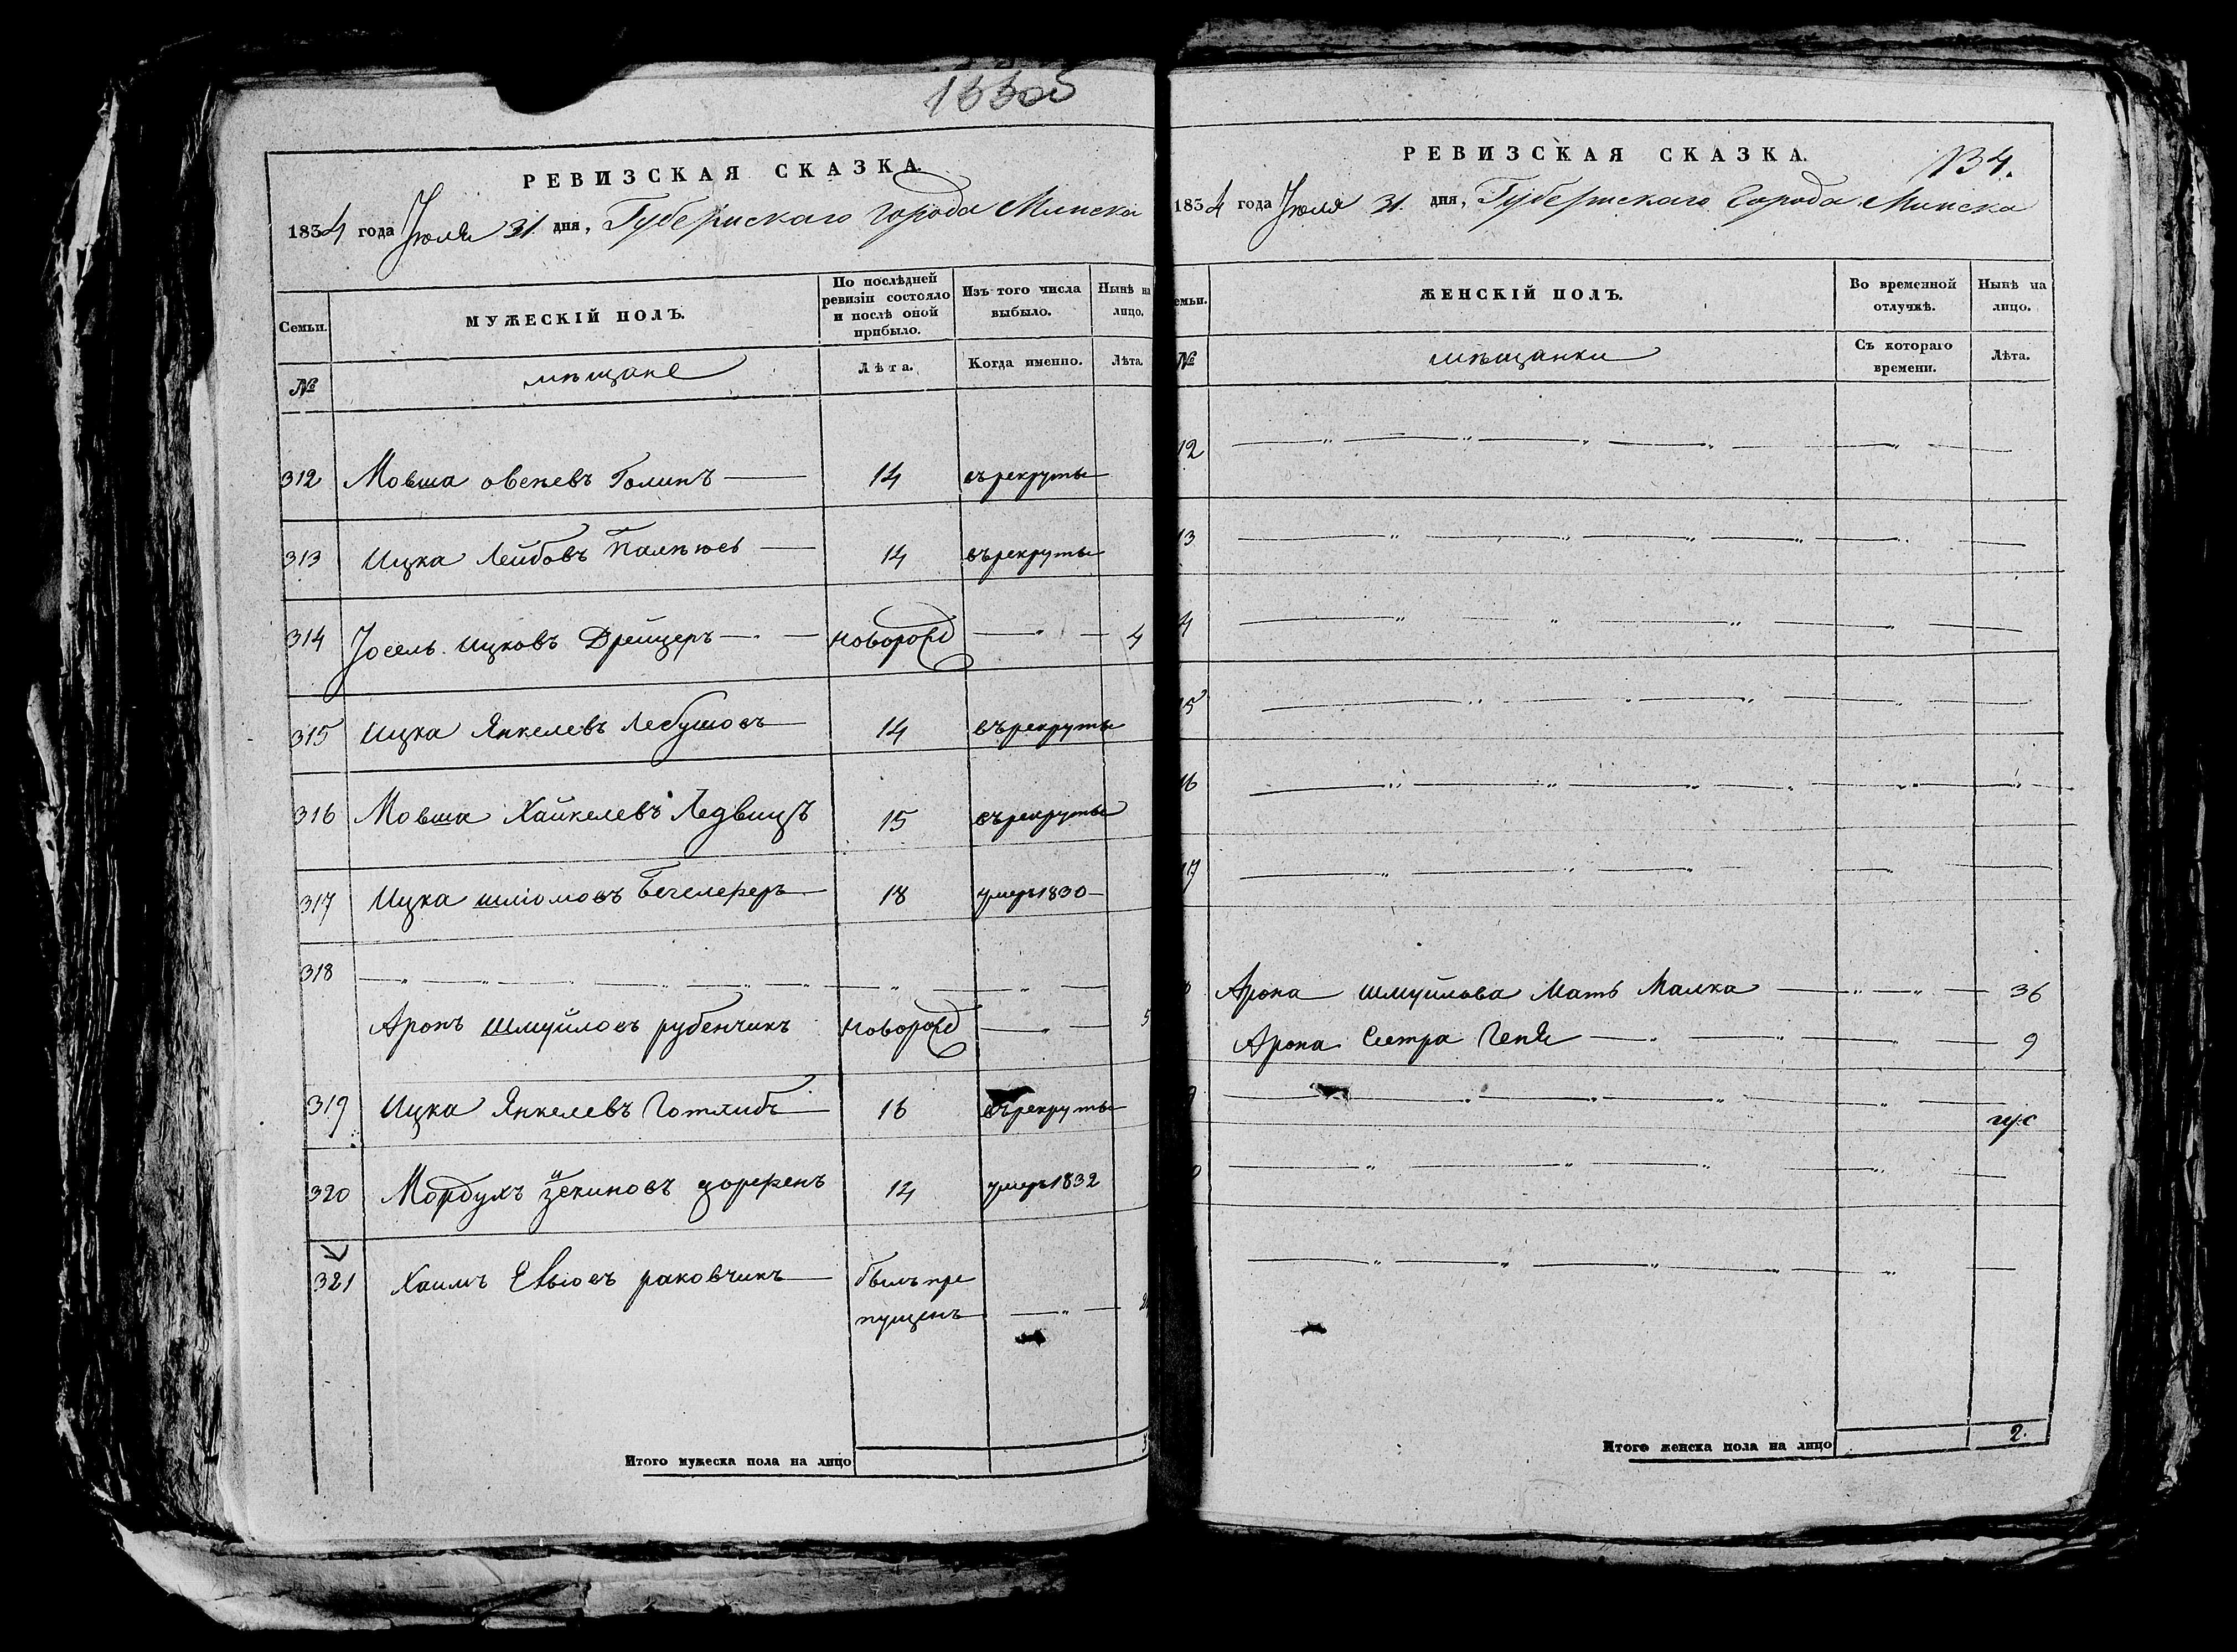 РЕВИЗСКАЯ СКАЗКА.
1834 года Июля 31 дня, Губернскаго города Минска
Семьи.
МУЖЕСКІЙ ПОЛЪ.
По послѣдней ревизіи состояло и послѣ оной прибыло.
Изъ того числа выбыло.
Нынѣ на лицо.
№
мѣщане
Лѣта.
Когда именно.
Лѣта
312 Мовша овсеевъ Голинъ 14 въ рекруты
313 Ицка Лейбовъ 14 въ рекруты
314 Іосель Ицковъ Дрейцеръ новорожд 4
315 Ицка Янкелевъ Лебушовъ 14 въ рекруты
316 Мовша Хайкелевъ Ледвицъ 15 въ рекруты
317 Ицка шліомовъ 18 умеръ 1830
318
Аронъ Шмуйловъ рубенчикъ новорожд 5
319 Ицка Янкелевъ Готлибъ 16 въ рекруты
320 14 умеръ 1832
321 Хаимъ Евъіовъ раковчикъ былъ про
пущенъ
Итого мужеска пола на лицо 3
РЕВИЗСКАЯ СКАЗКА.
134.
1834 года Июля 31 дня, Губернскаго города Минска
емьи.
ЖЕНСКІЙ ПОЛЪ.
Во временной отлучкѣ.
Нынѣ на лицо.
№
мѣщанки
Съ котораго времени.
Лѣта.
12
13
4
15
16
17
Арона шмуйлова Мать Малка 36
Арона Сестра Геня 9
Итого женска пола на лицо 2.